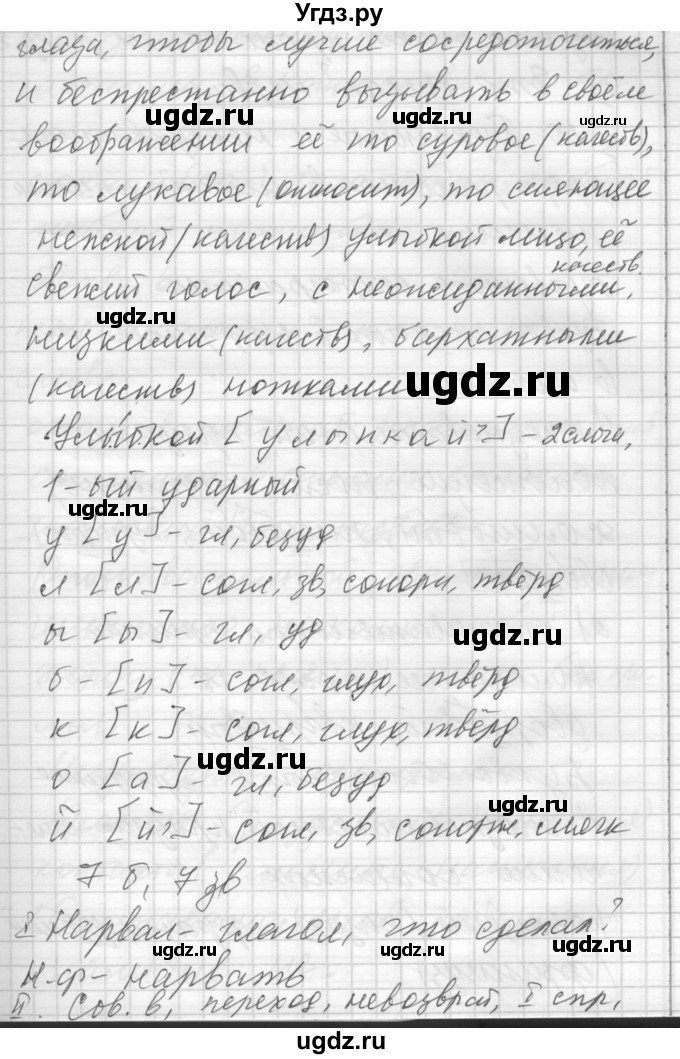 Угдз.ру
глаза, чтобы лучше сосредоточиться,
и беспрестанно вызывать в своём
воображении её то суровое (качеств),
то лукавое (относит), то сияющее
нежной (качеств) улыбкой лицо, её
качеств.
свежий голос, с неожиданными,
низкими (качеств), бархатными
(качеств) нотками
Улы́бкой [улыпкай'] - 2 слога,
1-ый ударный
у [у] - гл, безуд
л [л] - согл, зв, сонорн, твёрд
ы [ы] - гл, уд
б - [п] - согл, глух, твёрд
к [к] - согл, глух, твёрд
о [а] - гл, безуд
й [й'] - согл, зв, сонорн, мягк
7 б, 7 зв
I Нарвал - глагол, что сделал?
Н.ф - нарвать
II. Сов. в, переход, невозврат, I спр,
ugdz.ru
ugdz.ru
ugdz.ru
ugdz.ru
ugdz.ru
ugdz.ru
ugdz.ru
ugdz.ru
ugdz.ru
ugdz.ru
ugdz.ru
ugdz.ru